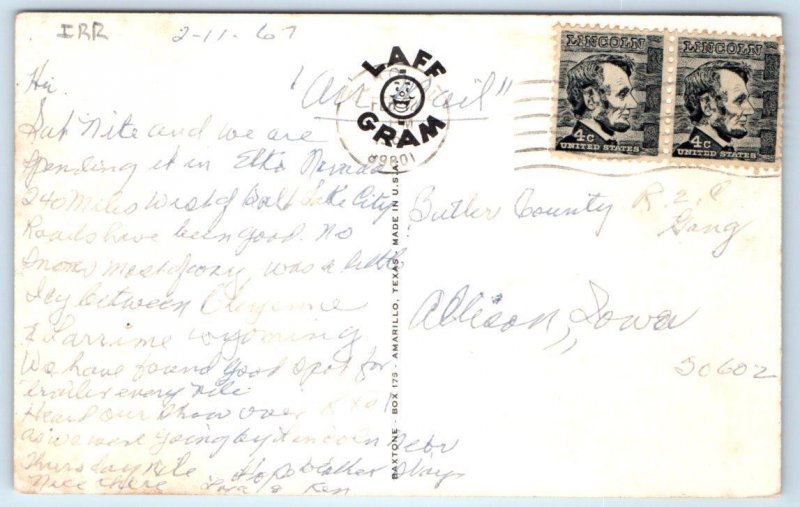 IRR 2-11-67
LAFF
GRAM
LINCOLN
4c
UNITED STATES
LINCOLN
4c
UNITED STATES
89801
BAXTONE - BOX 175 - AMARILLO, TEXAS - MADE IN U.S.A.
"Air Mail"
Hi.
Sat Nite and we are
spending it in Elko Nevada
240 miles west of Salt Lake City
Roads have been good. No
Snow was a little
Icy between Cheyenne
& Larrime Wyoming
We have found good spot for
trailer every nite
Heard our show over
as we were going by Lincoln Nebr
Thursday Nite Hope weather Stays
Nice there & Ken
Butler County R.E.C
Gang
Allison, Iowa
50602